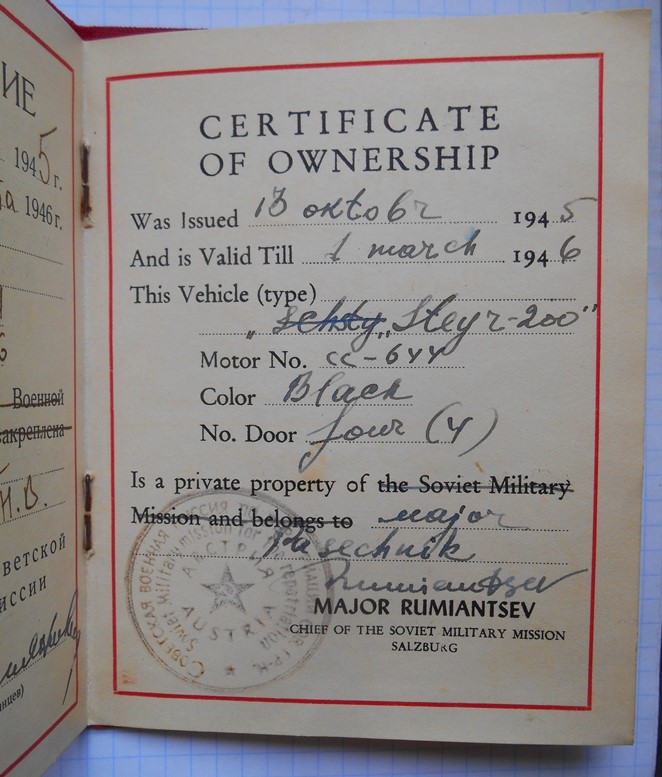 ИЕ
1945 г.
1946 г.
Военной
закреплена
Н.В.
ветской
иссии
нцев)
CERTIFICATE
OF OWNERSHIP
Was Issued 13 oktobr 1945
And is Valid Till 1 march 1946
This Vehicle (type)
„Steyr-200"
Motor No. cc-644
Color Black
No. Door four (4)
Is a private property of the Soviet Military
Mission and belongs to major
Pasechnik
Rumiantsev
MAJOR RUMIANTSEV
CHIEF OF THE SOVIET MILITARY MISSION
SALZBURG
СОВЕТСКАЯ ВОЕННАЯ МИССИЯ ПО
Soviet Military mission for repatriation
АВСТРИЯ
AUSTRIA